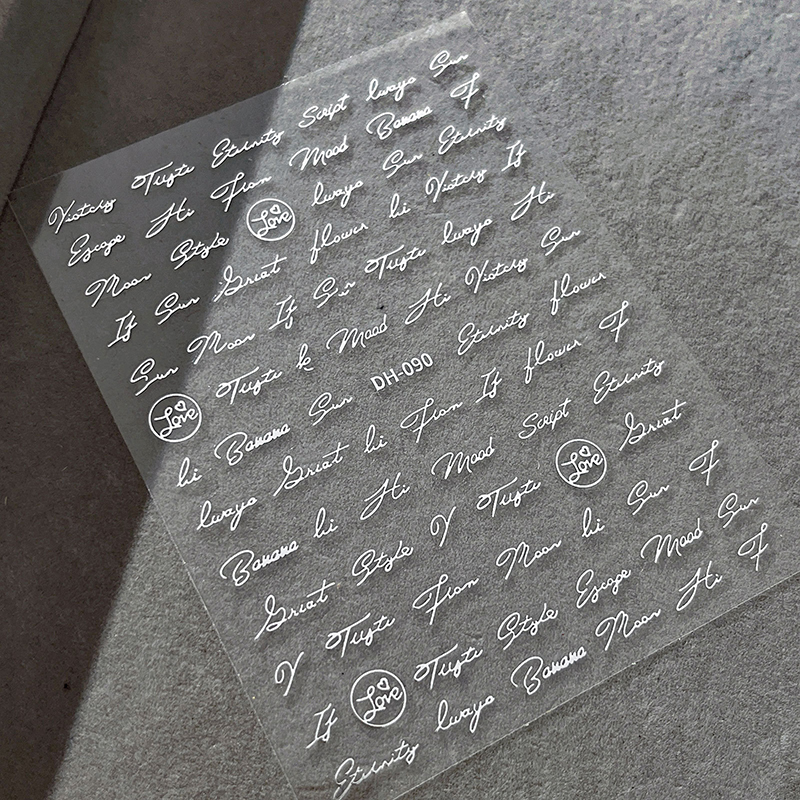 Victory Tuyte Eternity Script lwayo Sun
Escape Hi From Mood Banana F
Moon Style Love lwayo Sun Eternity
If Sun Great flower hi Victory If
Sun Moon If Sun Tuyte lwayo Hi
Love Tuyte k Mood Hi Victory Sun
hi Banana Sun DH-090 Eternity flower
lwayo Great hi From If flower F
Banana hi Hi Mood Script Eternity
Great Style V Tuyte Love Great
V Tuyte From Moon hi Sun F
If Love Tuyte Style Escape Mood Sun
Eternity lwayo Banana Moon Hi F